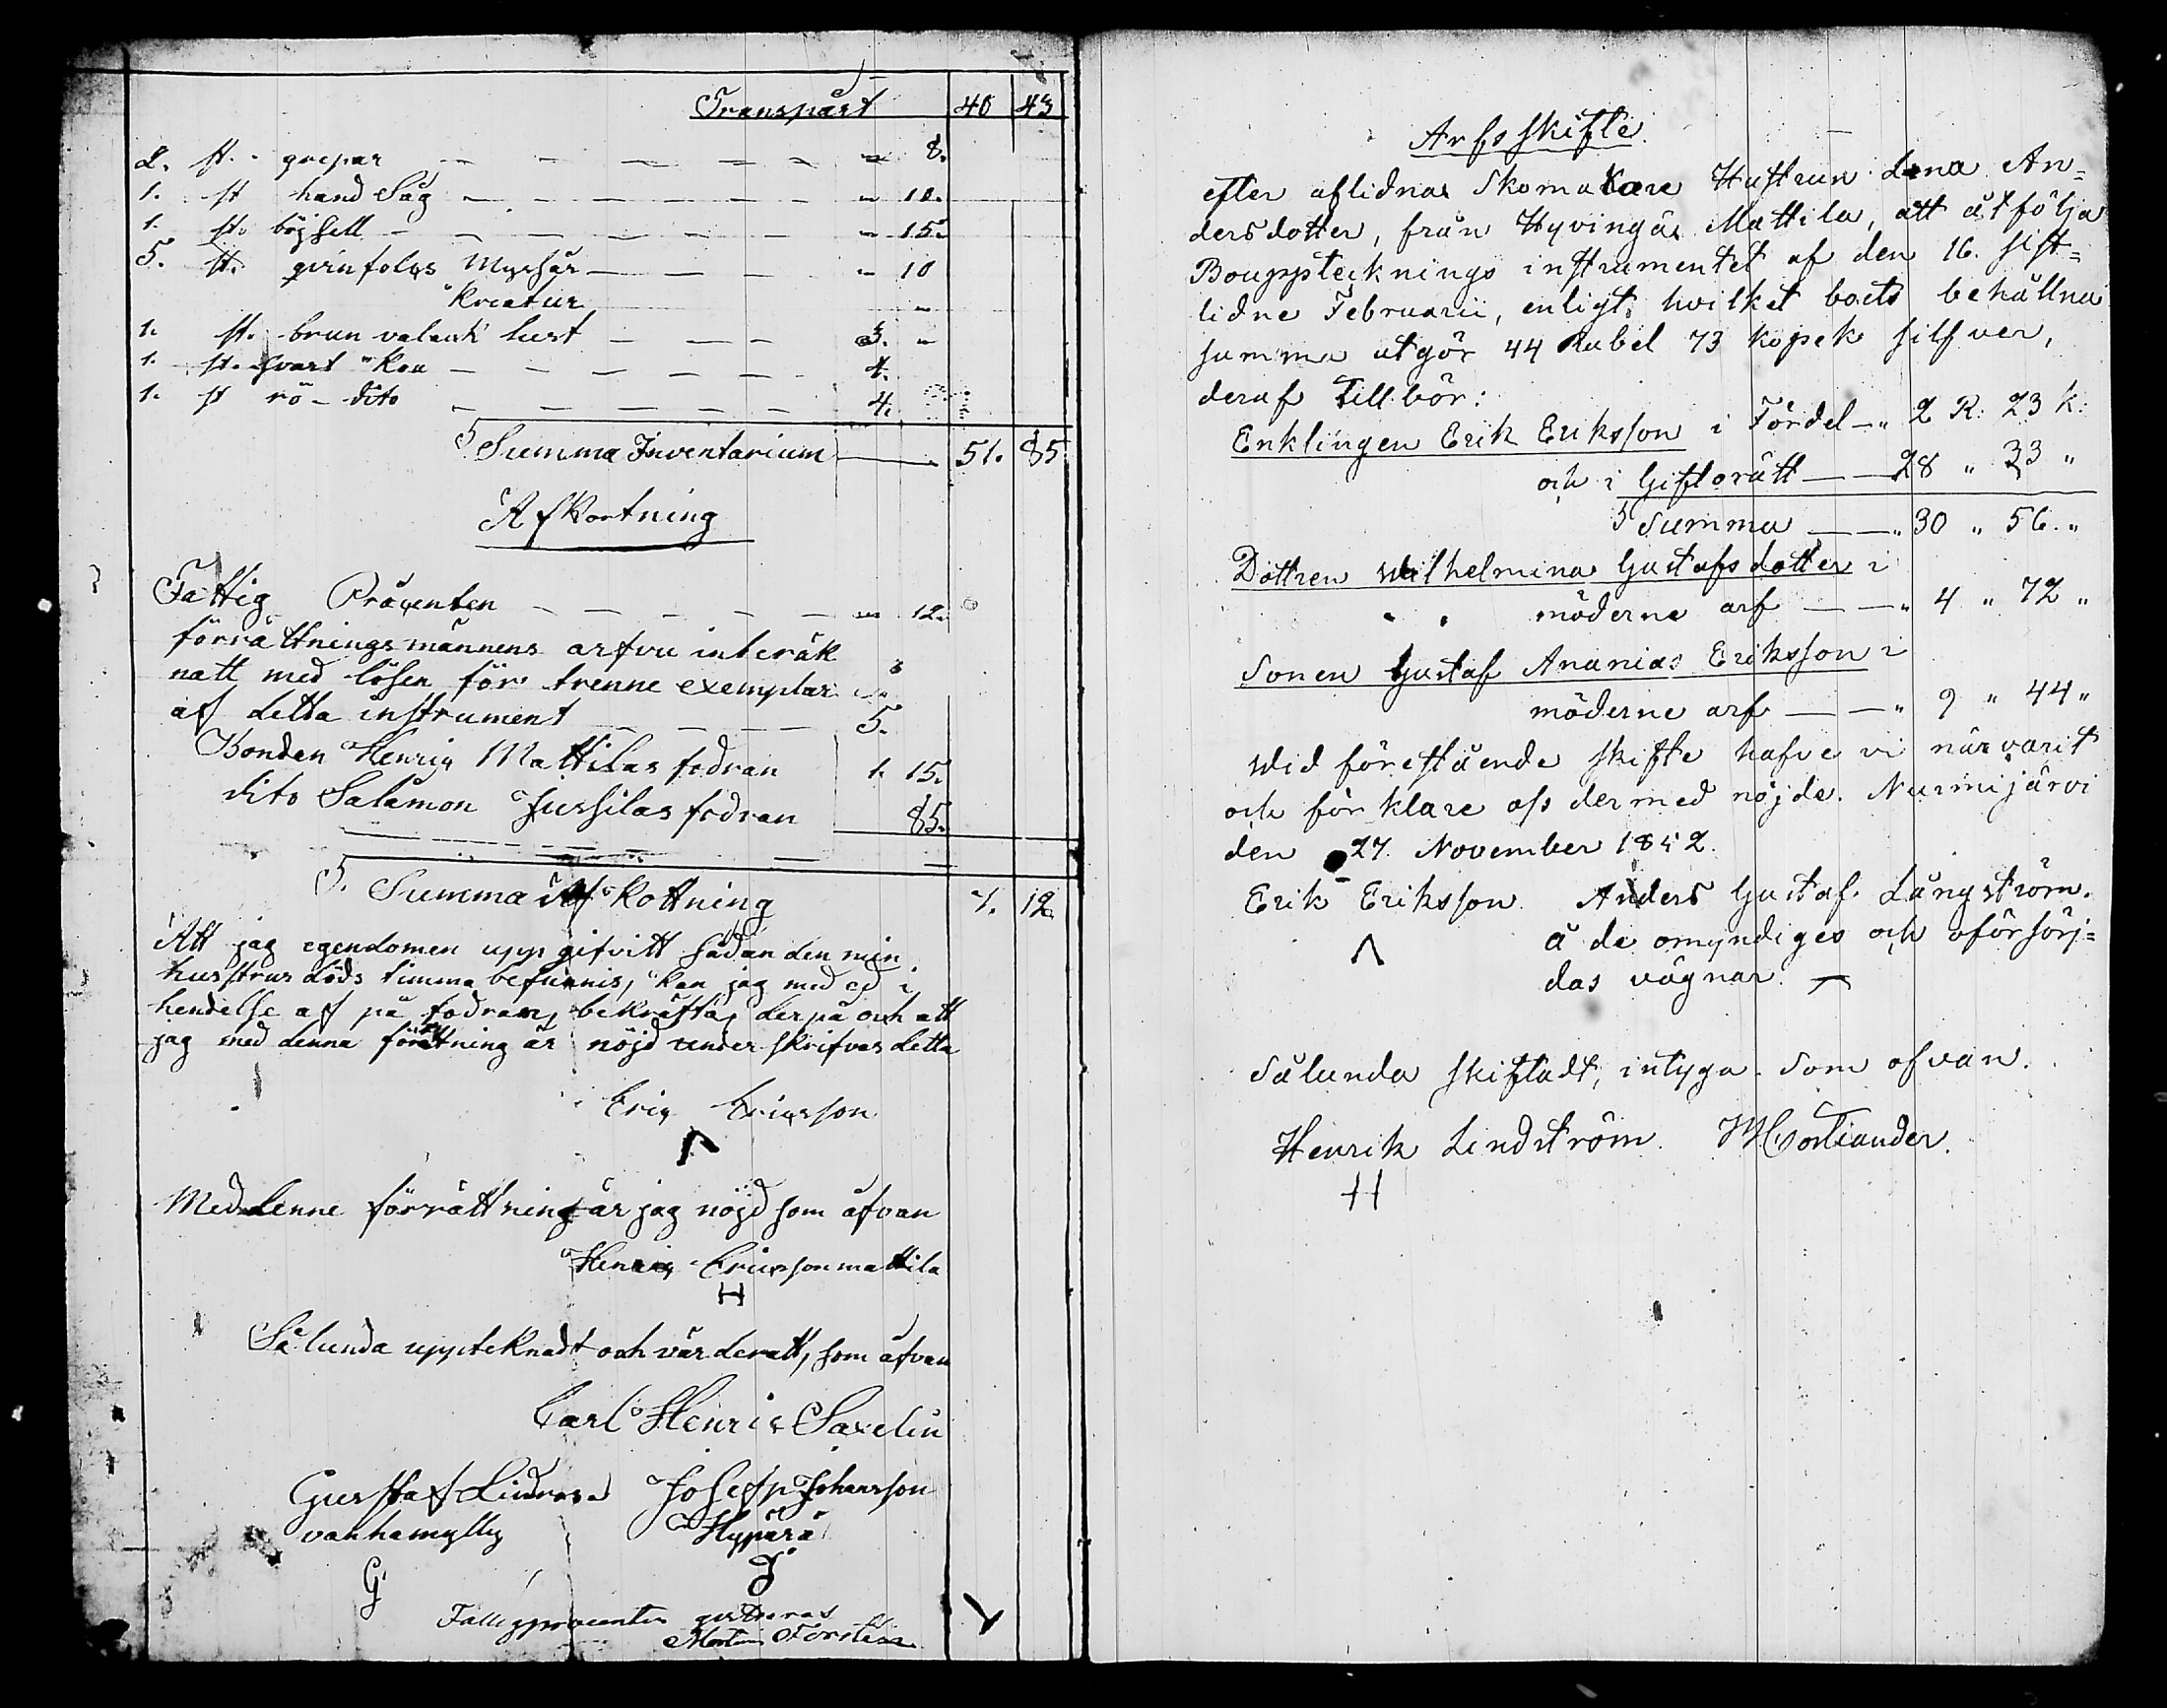 Transpårt 40 43
2. st. grepar — — — — — — " 8.
1. st hand Såg — — — — — — " 10.
1. st. böjsell — — — — — — " 15.
5. st. qvinfolqs Myssår — — — — " 10
Kreatur "
1. st. brun valack hest — — — 3. "
1. st. svart Koa — — — — — — 4.
1. st rö — dito — — — — — — 4.
Summa Inventarium — 51. 85
Afkortning
Fattig Präcenten — — — — — " 12.
förrättningsmännens arfvu inberäk
natt med lösen för trenne exemplar
af detta instrument — — — — 5.
Bonden Henriq Mattilas fodran 1. 15.
dito Salamon Jussilas fodran 85.
Summa Afkottning 7. 12
Att jag egendomen uppgifvitt sådan den min
husstrus döds timma befunnis, kan jag med ed i
hendelse af på fodran, bekräfta, der på och att
jag med denna förrättning är nöjd under skrifvas detta
Eriq Eriqsson
Λ
Med denne förrättning är jag nöjd som åfvan
Henriq Ericsson mattila
H
Sålunda uppteknadt och vårderatt, som åfvan
Carl Henric Saxelin
Gusstaf Lindroos Josefp Johansson
vanhamylly Hypärä
G. J
Fattigprocenten qvitteras
Martin Forstén
Arfsskifte.
efter aflidna Skomakare Hustrun Lena An=
dersdotter, från Hyvingää Mattila, att åtfölja
Bouppteckningsinstrumentet af den 16. sist=
lidne Februarii, enligt hvilket boets behållna
summa utgör 44 Rubel 73 kopek silfver,
deraf tillbör:
Enklingen Erik Eriksson i Fördel — " 2 R: 23 k:
och i Giftorätt — — 28 " 33 "
Summa — — " 30 " 56. "
Dottren Wilhelmina Gustafsdotter i
möderne arf — — " 4 " 72 "
Sonen Gustaf Ananias Eriksson i
möderne arf — — " 9 " 44 "
Wid förestående skifte hafve vi närvarit
och förklare oss dermed nöjde. Nurmijärvi
den 27. November 1852.
Erik Eriksson. Anders Gustaf Långström.
Λ å de omyndiges och oförsörj=
das vägnar.
Sålunda skiftadt, intyga som ofvan.
Henrik Lindström. M Costiander.
H